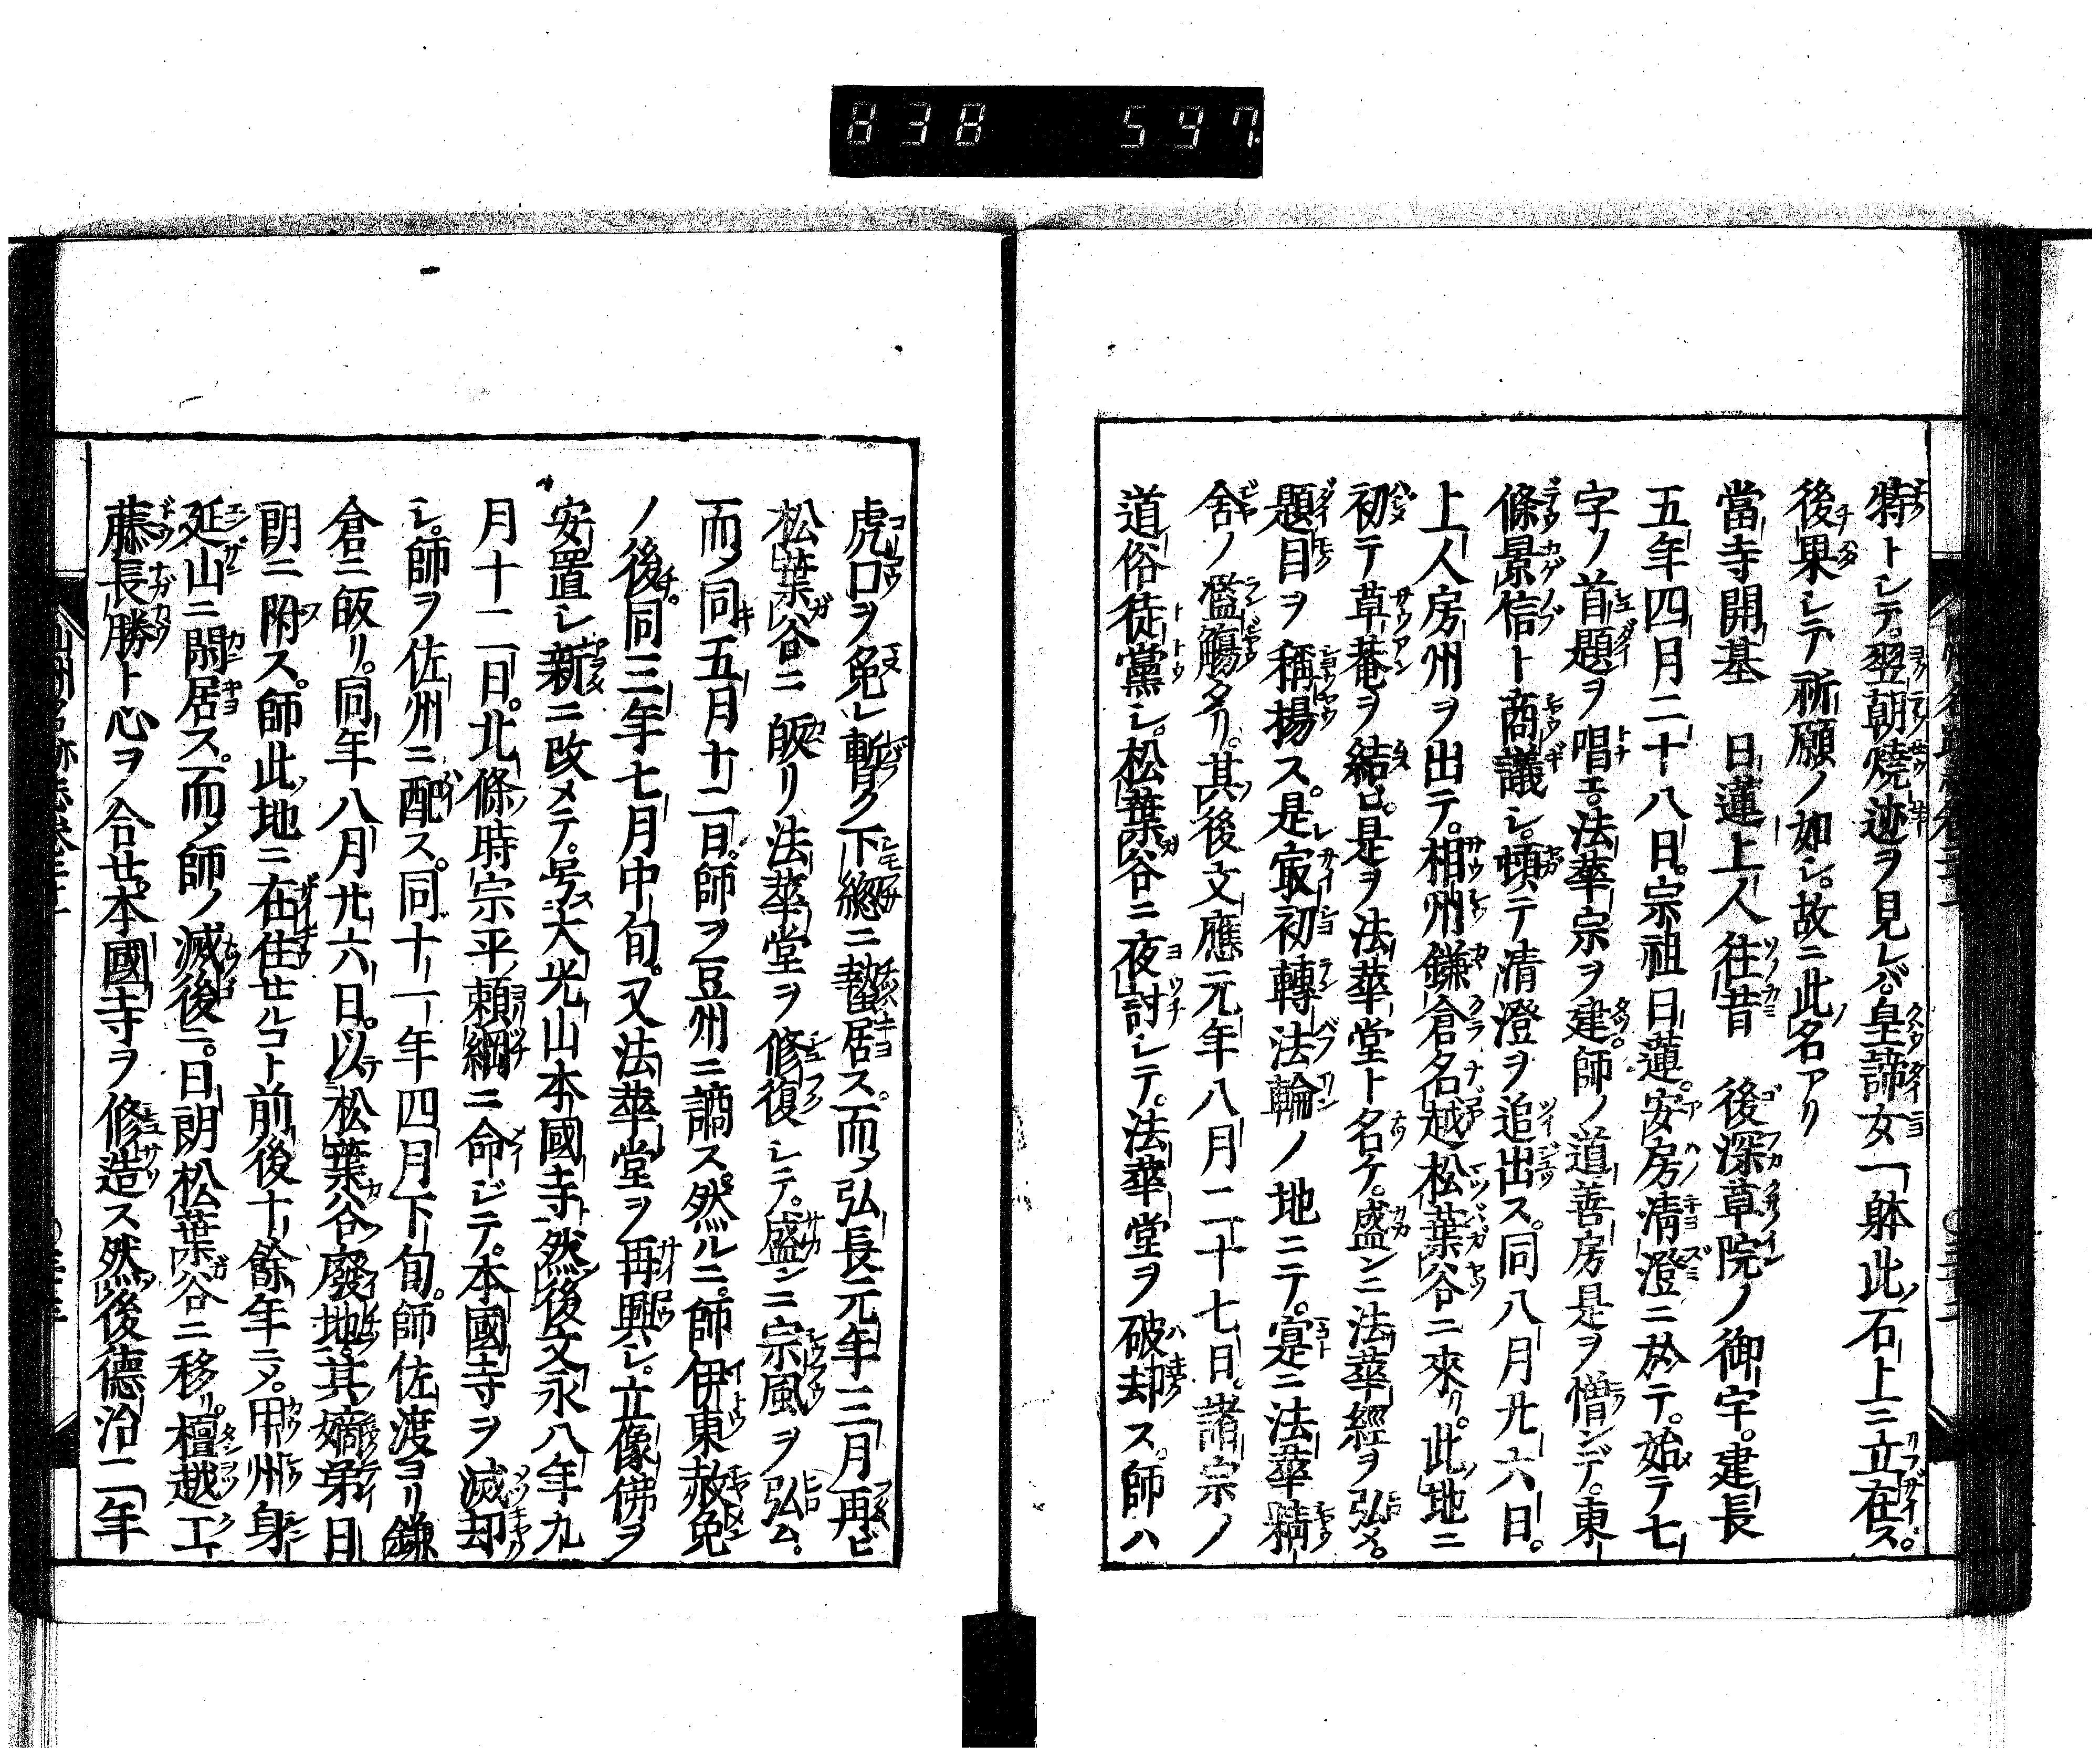 838 597
特トシテ。翌朝燒迹ヲ見レバ。皇諦女一躰此石上ニ立在ス。
後果シテ祈願ノ如シ。故ニ此名アリ
當寺開基 日蓮上人往昔 後深草院ノ御宇。建長
五年四月二十八日。宗祖日蓮。安房清澄ニ於テ。始テ七
字ノ首題ヲ唱エ。法華宗ヲ建。師ノ道善房是ヲ憎ンデ。東
條景信ト商議シ。頓テ清澄ヲ追出ス。同八月廿六日。
上人房州ヲ出テ。相州鎌倉名越松葉谷ニ來リ。此地ニ
初テ草菴ヲ結ヒ。是ヲ法華堂ト名ケ。盛ンニ法華經ヲ弘メ。
題目ヲ稱揚ス。是㝡初轉法輪ノ地ニテ。寔ニ法華精
舍ノ濫觴タリ。其後文應元年八月二十七日。諸宗ノ
道俗徒黨シ。松葉谷ニ夜討シテ。法華堂ヲ破却ス。師ハ
虎口ヲ免レ暫ク下總ニ蟄居ス。而〆弘長元年三月再ヒ
松葉谷ニ皈リ法華堂ヲ修復シテ。盛ンニ宗風ヲ弘ム。
而〆同五月十二日。師ヲ豆州ニ謫ス。然ルニ。師伊東赦免
ノ後。同三年七月中旬。又法華堂ヲ再興シ。立像佛ヲ
安置シ新ニ改メテ。号大光山本國寺。然後文永八年九
月十二日。北條時宗平頼綱ニ命ジテ。本國寺ヲ滅却
シ。師ヲ佐州ニ配ス。同十一年四月下旬。師佐渡ヨリ鎌
倉ニ皈リ。同年八月廿六日。以松葉谷廢地。其嫡弟日
朗ニ附ス。師此地ニ在住セルコト前後十餘年ニ〆。甲州身
延山ニ閑居ス。而〆師ノ滅後ニ。日朗松葉谷ニ移リ。檀越工
藤長勝ト心ヲ合セ。本國寺ヲ修造ス然後德治二年